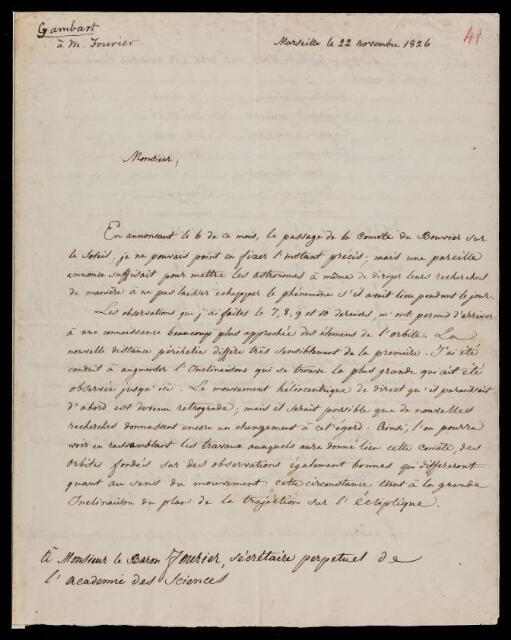 Gambart
à M. Fourier
Marseille le 22 novembre 1826
41
Monsieur,
En annoncant le 6 de ce mois, le passage de la Comète du Bouvier sur
le Soleil, je ne pouvais point en fixer l'instant précis; mais une pareille
annonce suffisait pour mettre les astronomes à même de diriger leurs recherches
de manière à ne pas laisser echapper le phénomène s'il avait lieu pendant le jour.
Les observations que j'ai faites les 7, 8, 9 et 10 derniers, m'ont permis d'arriver
à une connaissance beaucoup plus approchée des élémens de l'orbite. La
nouvelle distance périhélie diffère très sensiblement de la première. J'ai été
conduit à augmenter l'Inclinaison qui se trouve la plus grande qui ait été
observée jusqu'ici. Le mouvement héliocentrique de direct qu'il paraissait
d'abord est devenu retrograde; mais il serait possible que de nouvelles
recherches donnassent encore un changement à cet égard. Ainsi, l'on pourra
voir en rassemblant les travaux auxquels aura donné lieu cette comète, des
orbites fondés sur des observations également bonnes qui differeront
quant au sens du mouvement. cette circonstance tient à la grande
Inclinaison du plan de la trajection sur l'écliptique.
à Monsieur le Baron Fourier, sécrétaire perpetuel de
l'academie des Sciences